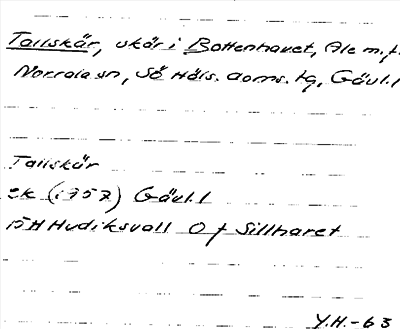 Tallskär, skär i Bottenhavet, Ale m.fl.
Norrala sn, Sö Häls. doms. tg, Gävl.l
Tallskär
ek (1957) Gävl.l
15H Hudiksvall 0 f Sillharet
Y.H.-63